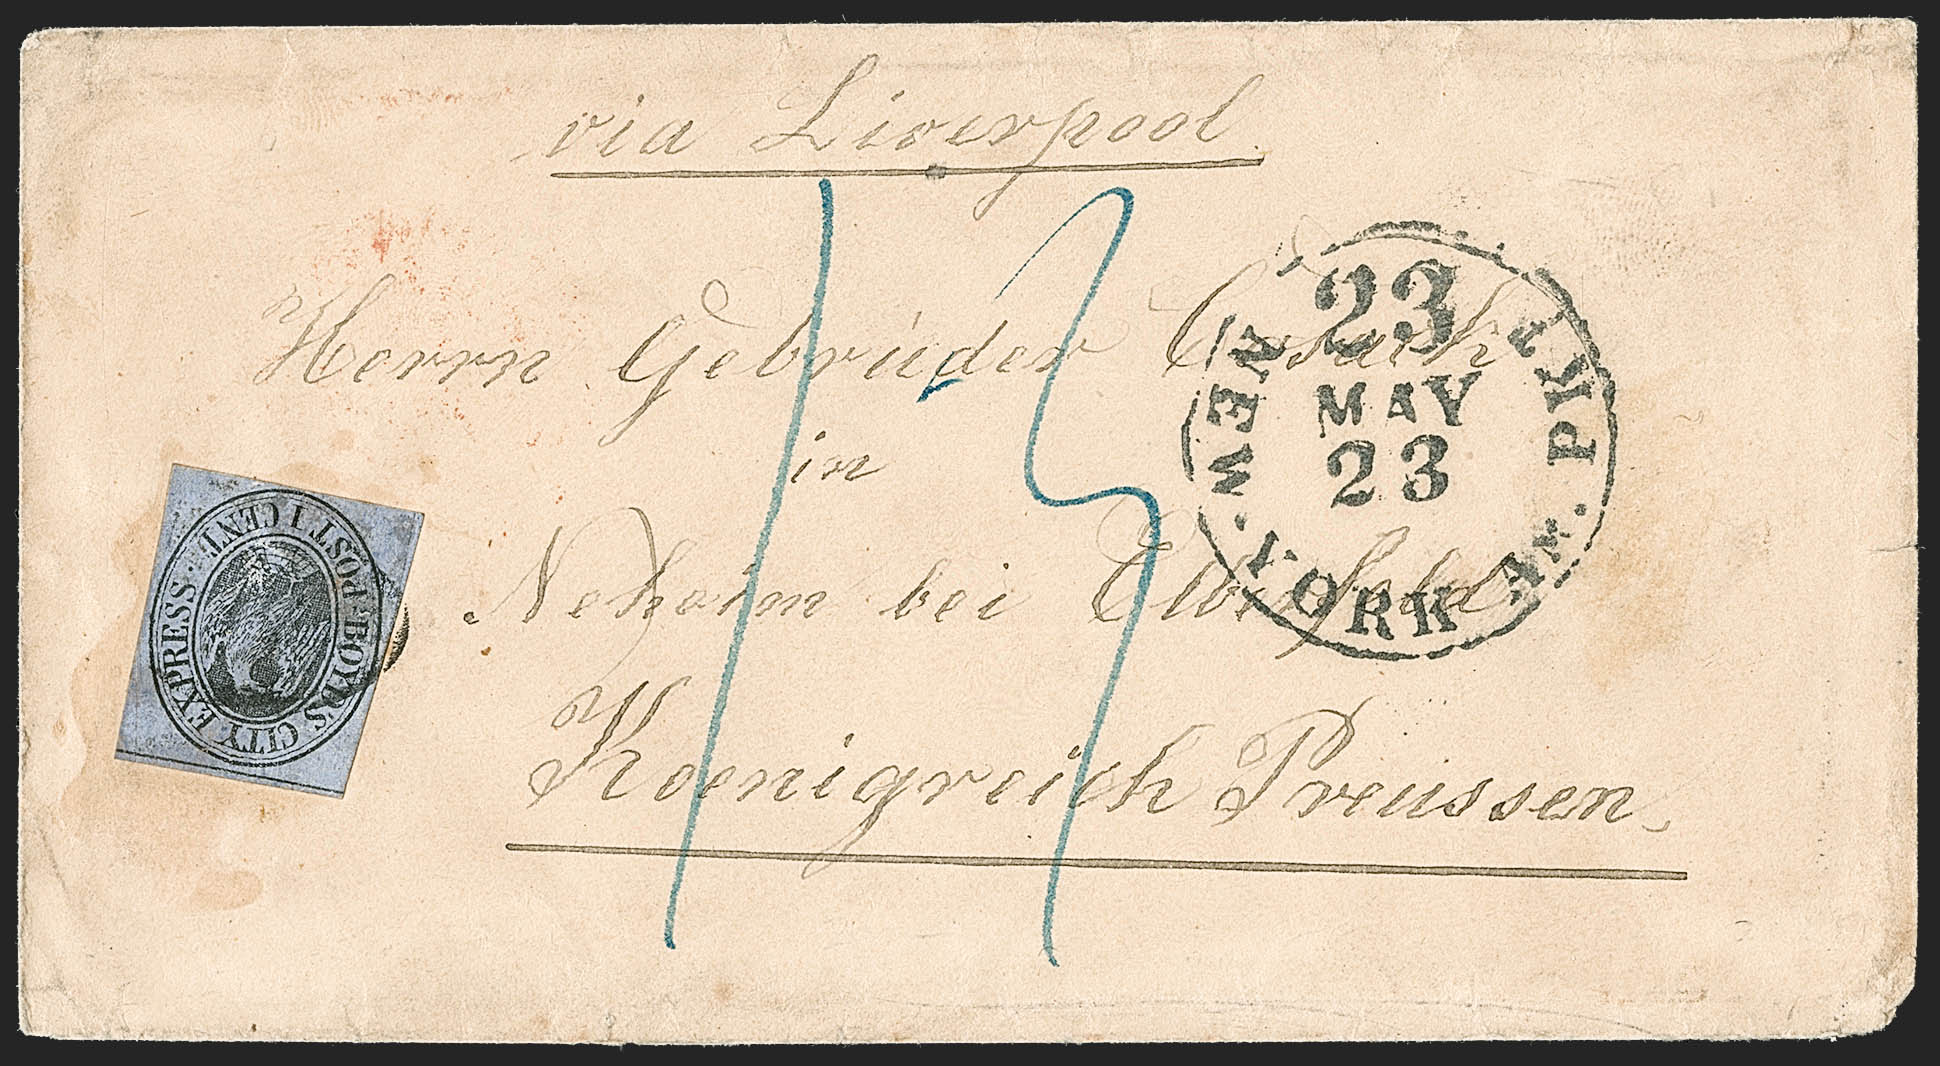 via Liverpool
Herrn Gebrüder
in
Neheim bei Elberfeld
Koenigreich Preussen
13
23
MAY
23
NEW. YORK AM. PKT.
BOYD'S CITY EXPRESS POST. 1 CENT.